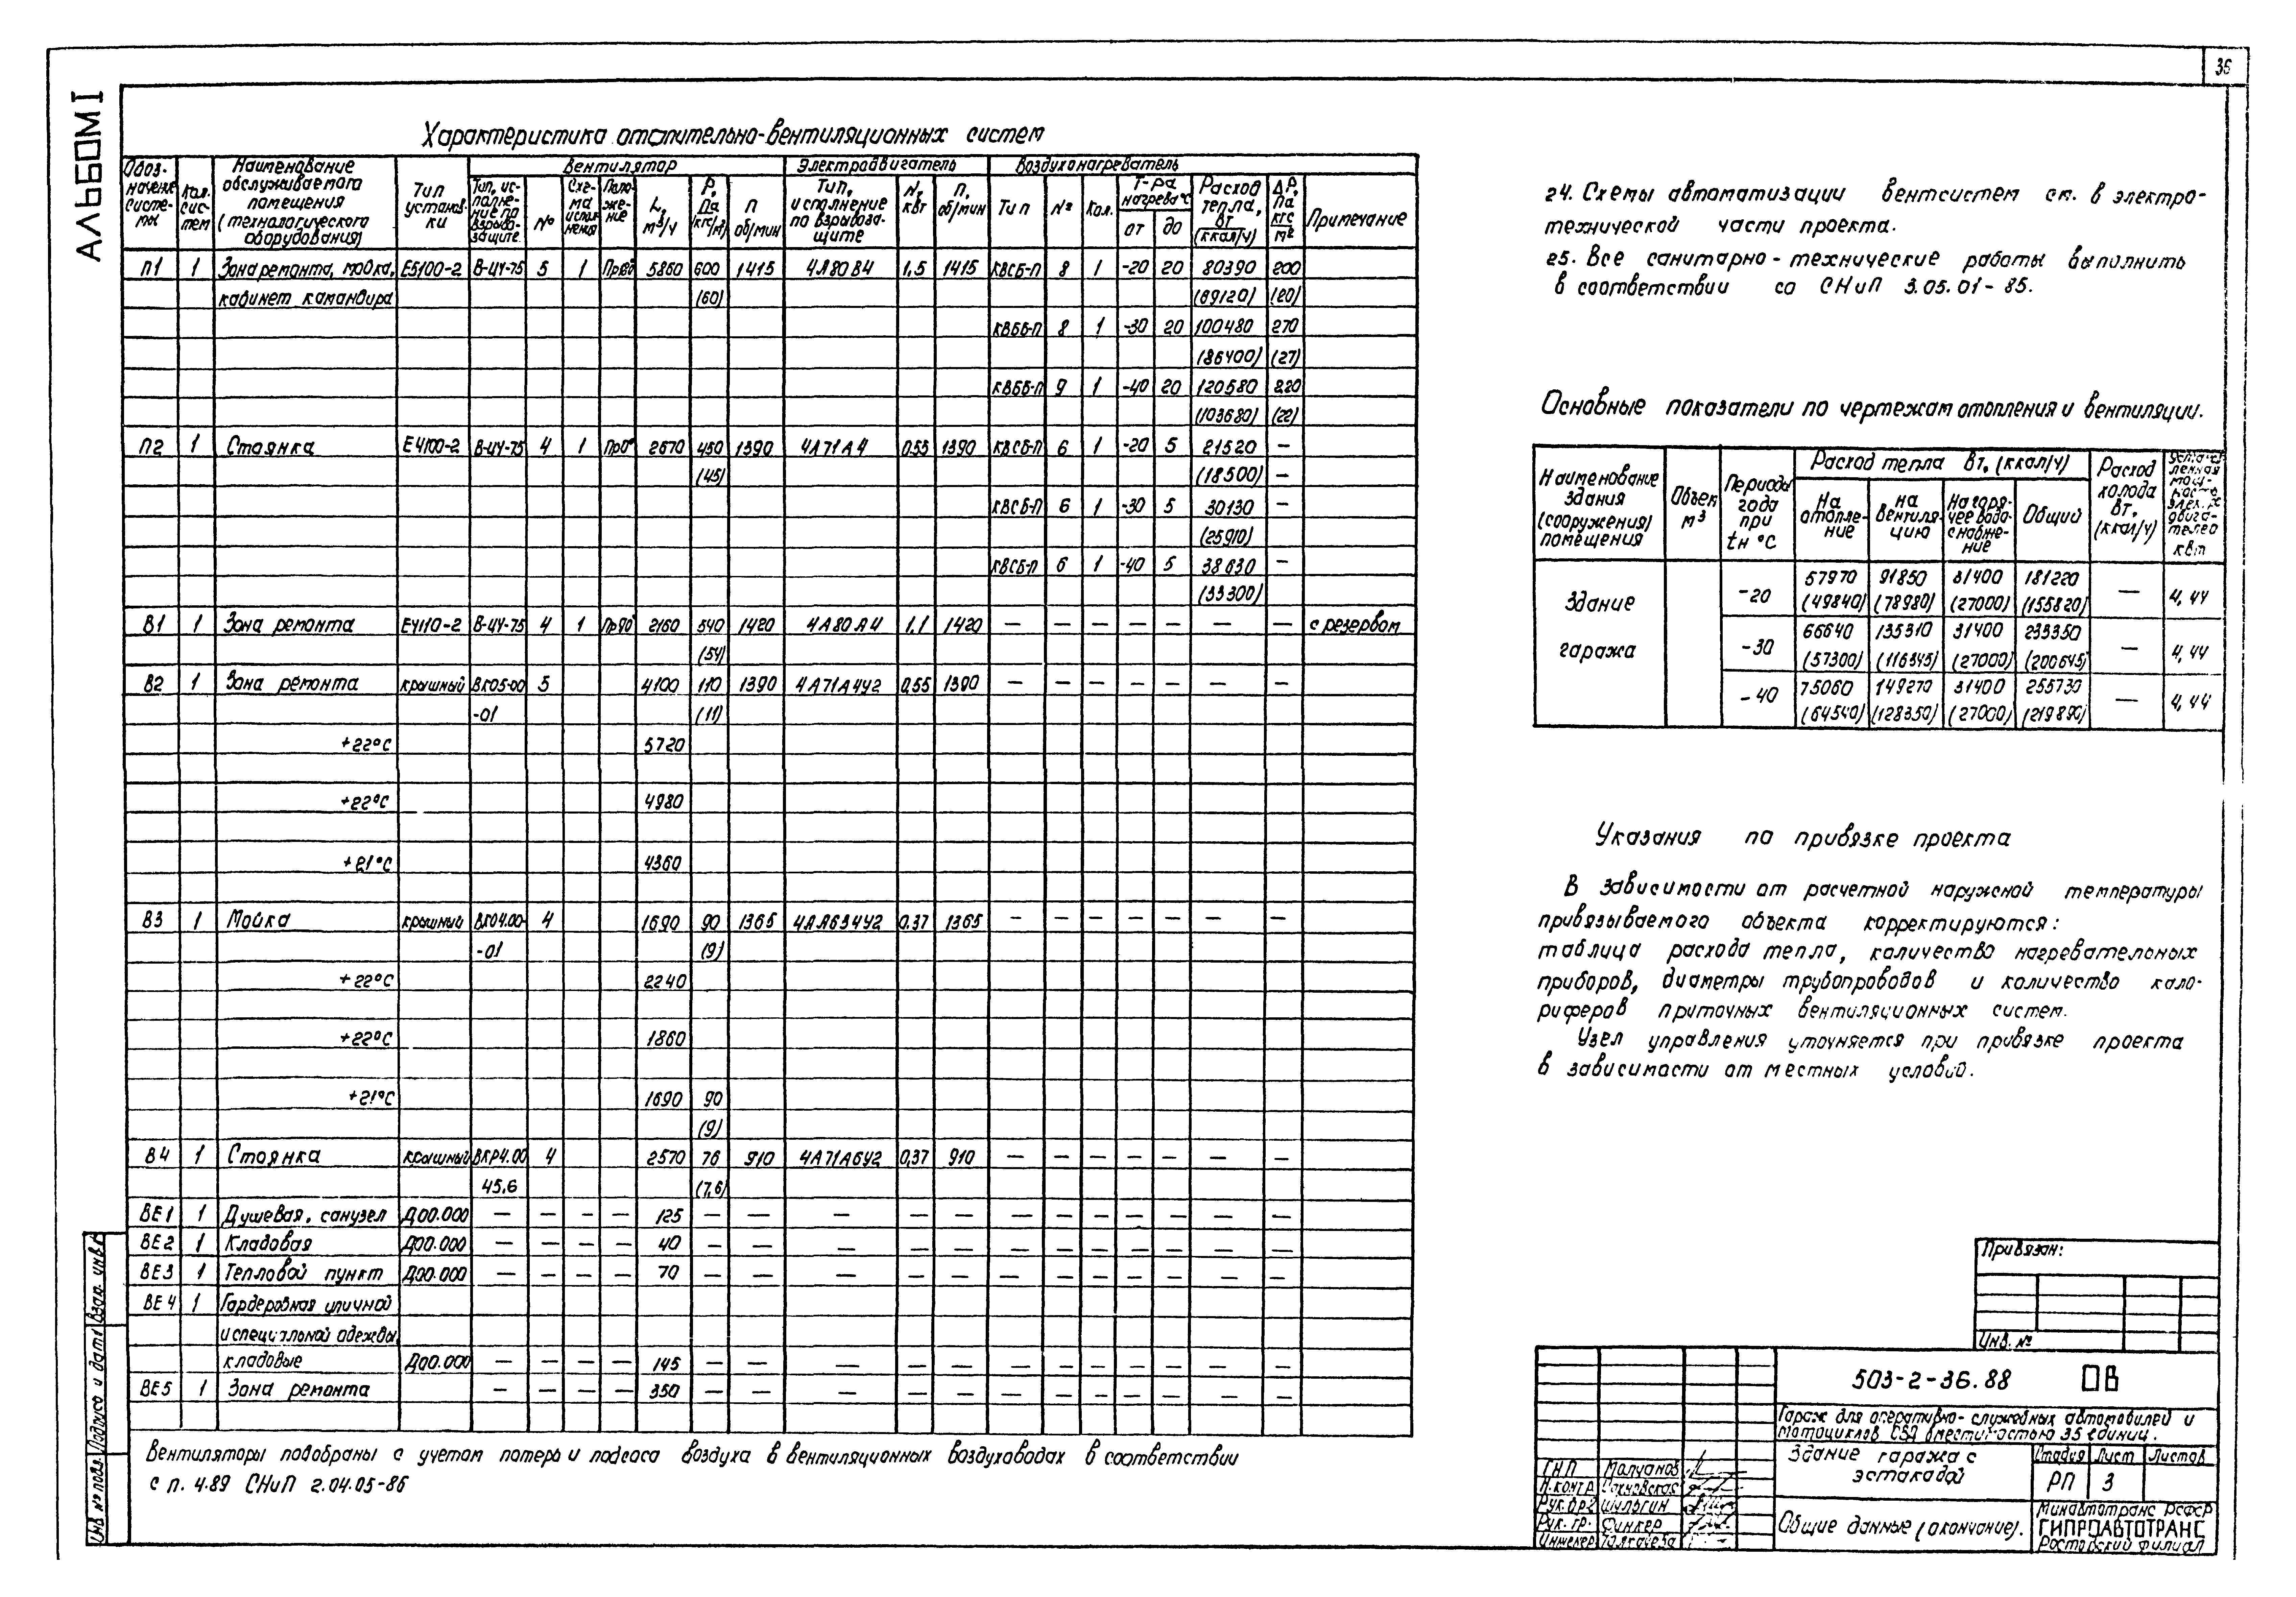 36
АЛЬБОМ I
Характеристика отопительно-вентиляционных систем
Обоз-начение систе-мы | Кол. сис-тем | Наименование обслуживаемого помещения (технологического оборудования) | Тип установ-ки | Вентилятор | Электродвигатель | Воздухонагреватель | Примечание
Тип, ис-полне-ние по взрыво-защите | № | Схе-ма испол-нения | Поло-же-ние | L, м³/ч | Р, Па (кгс/м²) | п об/мин | Тип, исполнение по взрывоза-щите | N, кВт | п, об/мин | Тип | № | Кол. | Т-ра нагрева °С от до | Расход тепла, Вт (ккал/ч) | ΔР, Па кгс/м²
П1 1 Зона ремонта, мойка, Е5100-2 В-Ц4-75 5 1 Пр0° 5860 600 1415 4А80В4 1,5 1415 КВСБ-П 8 1 -20 20 80390 200
кабинет командира (60) (69120) (20)
КВББ-П 8 1 -30 20 100480 270
(86400) (27)
КВББ-П 9 1 -40 20 120580 220
(103680) (22)
П2 1 Стоянка Е4100-2 В-Ц4-75 4 1 Пр0° 2670 450 1390 4А71А4 0.55 1390 КВСБ-П 6 1 -20 5 21520 —
(45) (18500) —
КВСБ-П 6 1 -30 5 30130 —
(25910)
КВСБ-П 6 1 -40 5 38630 —
(33300)
В1 1 Зона ремонта Е4110-2 В-Ц4-75 4 1 Пр90° 2160 540 1420 4А80А4 1,1 1420 — — — — — — — с резервом
(54)
В2 1 Зона ремонта крышный ВК05-00 5 4100 110 1390 4А71А4У2 0,55 1390 — — — — — — —
-01 (11)
+22°С 5720
+22°С 4980
+21°С 4360
В3 1 Мойка крышный ВК04.00- 4 1690 90 1365 4АА634У2 0.37 1365 — — — — — — —
-01 (9)
+22°С 2240
+22°С 1860
+21°С 1690 90
(9)
В4 1 Стоянка крышный ВКР4.00 4 2570 76 910 4А71А6У2 0,37 910 — — — — — — —
45,6 (7,6)
ВЕ1 1 Душевая, санузел Д00.000 — — — — 125 — — — — — — — — — — — —
ВЕ2 1 Кладовая Д00.000 — — — — 40 — — — — — — — — — — — —
ВЕ3 1 Тепловой пункт Д00.000 — — — — 70 — — — — — — — — — — — —
ВЕ4 1 Гардеробная уличной
и специальной одежды,
кладовые Д00.000 — — — — 145 — — — — — — — — — — — —
ВЕ5 1 Зона ремонта — — — — 350 — — — — — — — — — — — —
Вентиляторы подобраны с учетом потерь и подсоса воздуха в вентиляционных воздуховодах в соответствии
с п. 4.89 СНиП 2.04.05-86
24. Схемы автоматизации вентсистем см. в электро-
технической части проекта.
25. Все санитарно-технические работы выполнить
в соответствии со СНиП 3.05.01-85.
Основные показатели по чертежам отопления и вентиляции.
Наименование здания (сооружения) помещения | Объем м³ | Периоды года при tн °С | Расход тепла Вт, (ккал/ч) | Расход холода Вт, (ккал/ч) | Установ-ленная мощ-ность элек. двига-телей кВт
На отопле-ние | на вентиля-цию | На горя-чее водо-снабже-ние | Общий
Здание гаража
-20 57970 91850 31400 181220 — 4,44
(49840) (78980) (27000) (155820)
-30 66640 135310 31400 233350 — 4,44
(57300) (116345) (27000) (200645)
-40 75060 149270 31400 255730 — 4,44
(64540) (128350) (27000) (219890)
Указания по привязке проекта
В зависимости от расчетной наружной температуры
привязываемого объекта корректируются:
таблица расхода тепла, количество нагревательных
приборов, диаметры трубопроводов и количество кало-
риферов приточных вентиляционных систем.
Узел управления уточняется при привязке проекта
в зависимости от местных условий.
Привязан:
Инв. №
503-2-36.88 ОВ
Гараж для оперативно-служебных автомобилей и
мотоциклов вместимостью 35 единиц.
Здание гаража с
эстакадой
Стадия Лист Листов
РП 3
Общие данные (окончание).
Минавтотранс РСФСР
ГИПРОАВТОТРАНС
Ростовский филиал
ГИП Молчанов
Н.контр.
Рук.бр. Шульгин
Рук. гр. Финкер
Инженер
Инв № подл. Подпись и дата Взам. инв №